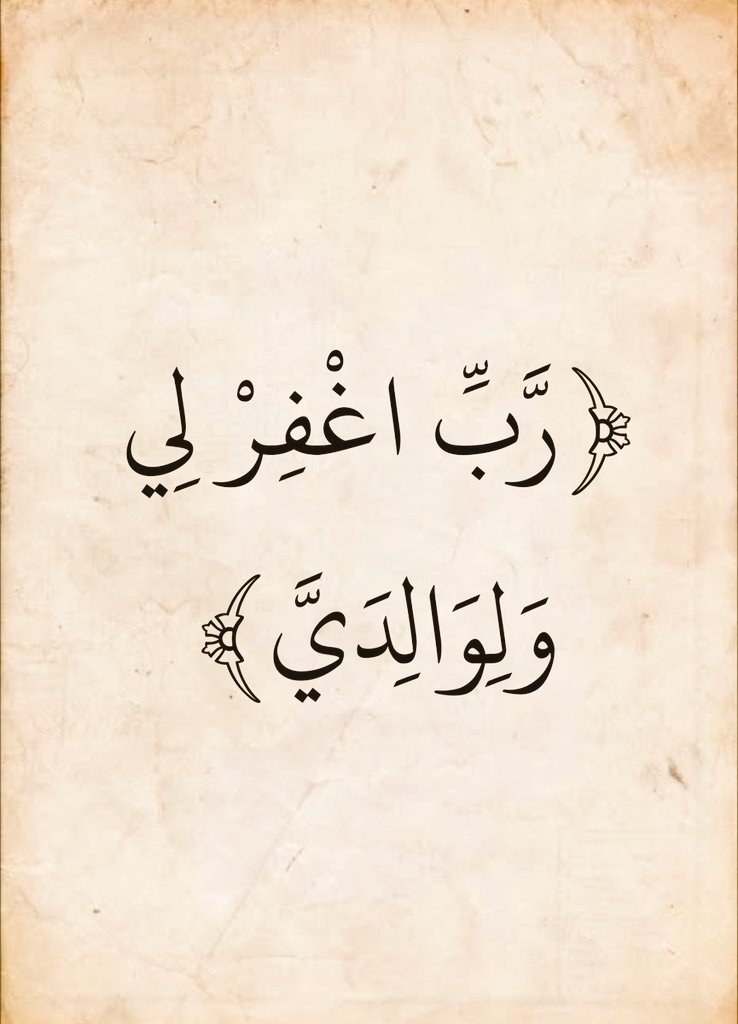 ﴿رَّبِّ اغْفِرْ لِي
وَلِوَالِدَيَّ﴾